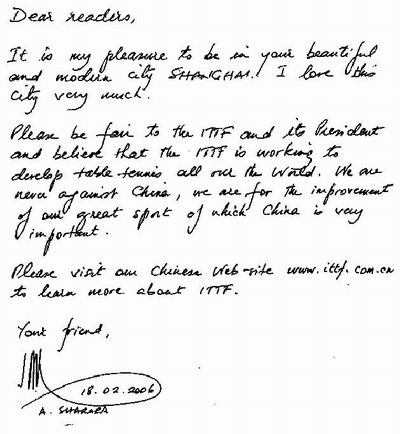 Dear readers,
It is my pleasure to be in your beautiful
and modern city SHANGHAI. I love this
city very much.
Please be fair to the ITTF and its President
and believe that the ITTF is working to
develop table tennis all over the World. We are
never against China, we are for the improvement
of our great sport of which China is very
important.
Please visit our Chinese Web-site www.ittf.com.cn
to learn more about ITTF.
Your friend,
18.02.2006
A. SHARARA